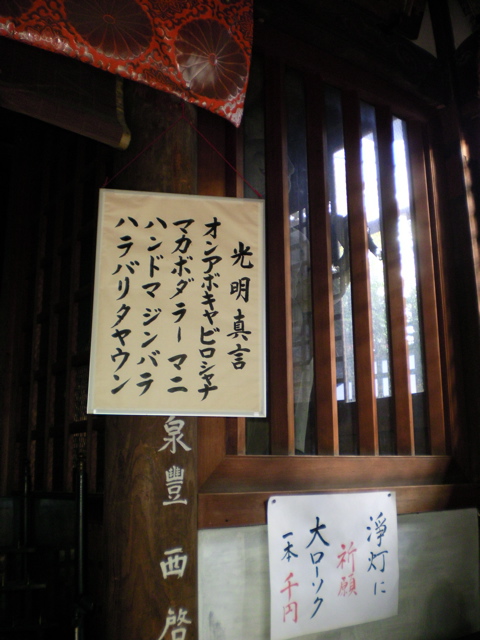 光明真言
オンアボキャビロシャナ
マカボダラーマニ
ハンドマジンバラ
ハラバリタヤウン
泉豐西啓
淨灯に
祈願
大ローソク
一本千円